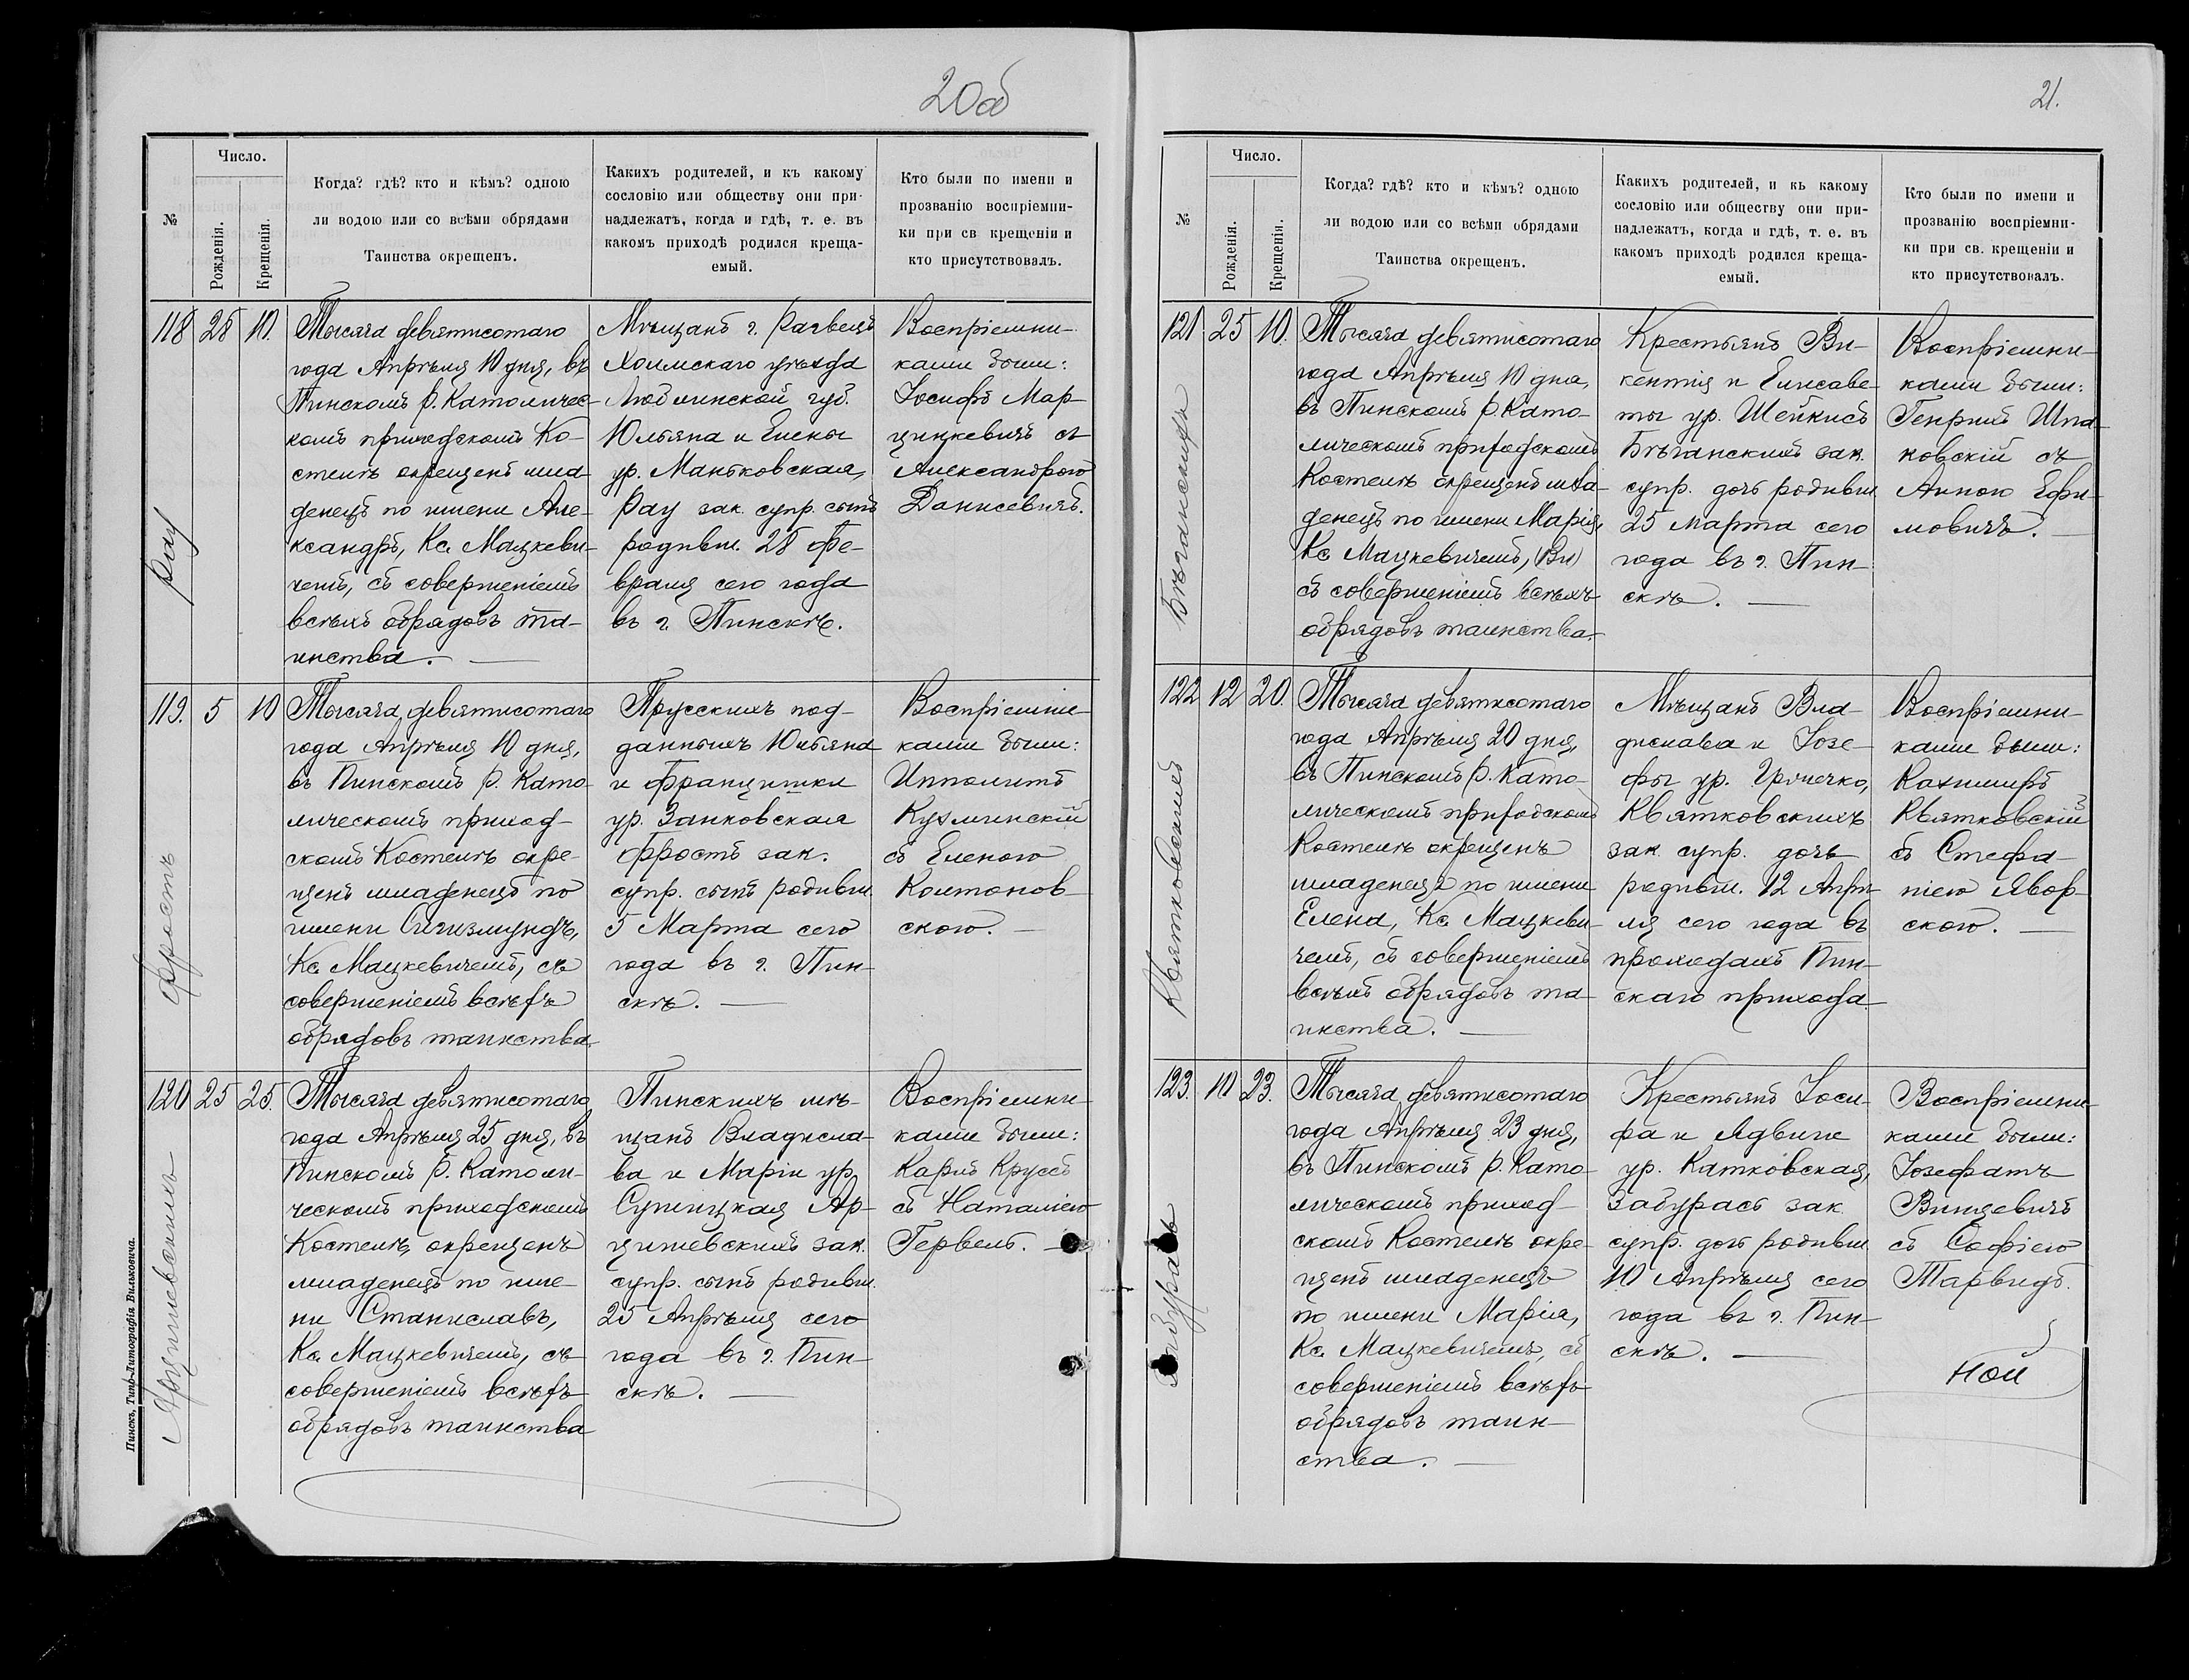 20об
№
Число.
Рожденія.
Крещенія.
Когда? гдѣ? кто и кѣмъ? одною
ли водою или со всѣми обрядами
Таинства окрещенъ.
Какихъ родителей, и къ какому
сословію или обществу они при-
надлежатъ, когда и гдѣ, т. е. въ
какомъ приходѣ родился креща-
емый.
Кто были по имени и
прозванію воспріемни-
ки при св крещеніи и
кто присутствовалъ.
118
28
10.
Рау
Тысяча девятисотаго
года Апрѣля 10 дня, въ
Пинскомъ Р. Католичес-
комъ приходскомъ Ко-
стелѣ окрещенъ мла-
денецъ по имени Але-
ксандръ, Кс. Мацкеви-
чемъ, съ совершеніемъ
всѣхъ обрядовъ та-
инства.
Мѣщанъ г.
Холмскаго уѣзда
Люблинской губ.
Юльяна и Елены
ур. Маньковская,
Рау зак. супр. сынъ
родивш. 28 Фе-
враля сего года
въ г. Пинскѣ.
Воспріемни-
ками были:
Іосифъ Мар-
цинкевичъ съ
Александрою
Данисевичъ.
119.
5
10
Фростъ
Тысяча девятисотаго
года Апрѣля 10 дня,
въ Пинскомъ Р. Като-
лическомъ приход-
скомъ Костелѣ окре-
щенъ младенецъ по
имени Сигизмундъ,
Кс. Мацкевичемъ, съ
совершеніемъ всѣхъ
обрядовъ таинства.
Прусскихъ под-
данныхъ Юльяна
и Францишки
ур. Занковская
Фростъ зак.
супр. сынъ родивш.
5 Марта сего
года въ г. Пин-
скѣ.
Воспріемни-
ками были:
Ипполитъ
Кузминскій
съ Еленою
Колтонов-
скою.
120
25
25.
Арцишевскихъ
Тысяча девятисотаго
года Апрѣля 25 дня, въ
Пинскомъ Р. Католи-
ческомъ приходскомъ
Костелѣ, окрещенъ
младенецъ по име-
ни Станиславъ,
Кс. Мацкевичемъ, съ
совершеніемъ всѣхъ
обрядовъ таинства
Пинскихъ мѣ-
щанъ Владисла-
ва и Маріи ур.
Супицкая Ар-
цишевскихъ зак.
супр. сынъ родивш.
25 Апрѣля сего
года въ г. Пин-
скѣ.
Воспріемни-
ками были:
Карлъ Круссъ
съ Наталіею
Гервель.
Пинскъ, Типо-Литографія Вильковича.
21.
№
Число.
Рожденія.
Крещенія.
Когда? гдѣ? кто и кѣмъ? одною
ли водою или со всѣми обрядами
Таинства окрещенъ.
Какихъ родителей, и къ какому
сословію или обществу они при-
надлежатъ, когда и гдѣ, т. е. въ
какомъ приходѣ родился креща-
емый.
Кто были по имени и
прозванію воспріемни-
ки при св. крещеніи и
кто присутствовалъ.
121
25
10.
Тысяча девятисотаго
года Апрѣля 10 дня,
въ Пинскомъ Р. Като-
лическомъ приходскомъ
Костелѣ окрещенъ мла-
денецъ по имени Марія,
Кс. Мацкевичемъ, (Ви)
съ совершеніемъ всѣхъ
обрядовъ таинства.
Крестьянъ Ви-
кентія и Елисаве-
ты ур. Шейкисъ
Бѣганскихъ зак.
супр. дочь родивш.
25 Марта сего
года въ г. Пин-
скѣ.
Воспріемни-
ками были:
Генрикъ Шпа-
ковскій съ
Анною Ефи-
мовичъ.
122
12
20.
Квятковскихъ
Тысяча девятисотаго
года Апрѣля 20 дня,
въ Пинскомъ Р. Като-
лическомъ приходскомъ
Костелѣ окрещенъ
младенецъ по имени
Елена, Кс. Мацкеви-
чемъ, съ совершеніемъ
всѣхъ обрядовъ та-
инства.
Мѣщанъ Вла-
дислава и Іозе-
фы ур. Гричечко,
Квятковскихъ
зак. супр. дочь
родивш. 12 Апрѣ-
ля сего года въ
проходахъ Пин-
скаго прихода.
Воспріемни-
ками были:
Казимиръ
Квятковскій
съ Стефа-
ніею Явор-
скою.
123.
10
23.
Забурасъ
Тысяча девятисотаго
года Апрѣля 23 дня,
въ Пинскомъ Р. Като-
лическомъ приход-
скомъ Костелѣ окре-
щенъ младенецъ
по имени Марія,
Кс. Мацкевичемъ, съ
совершеніемъ всѣхъ
обрядовъ таин-
ства.
Крестьянъ Іоси-
фа и Ядвиги
ур. Катковская,
Забурасъ зак.
супр. дочь родивш.
10 Апрѣля сего
года въ г. Пин-
скѣ.
Воспріемни-
ками были:
Іозефатъ
Винцевичъ
съ Софіею
Тарвидъ.
ной